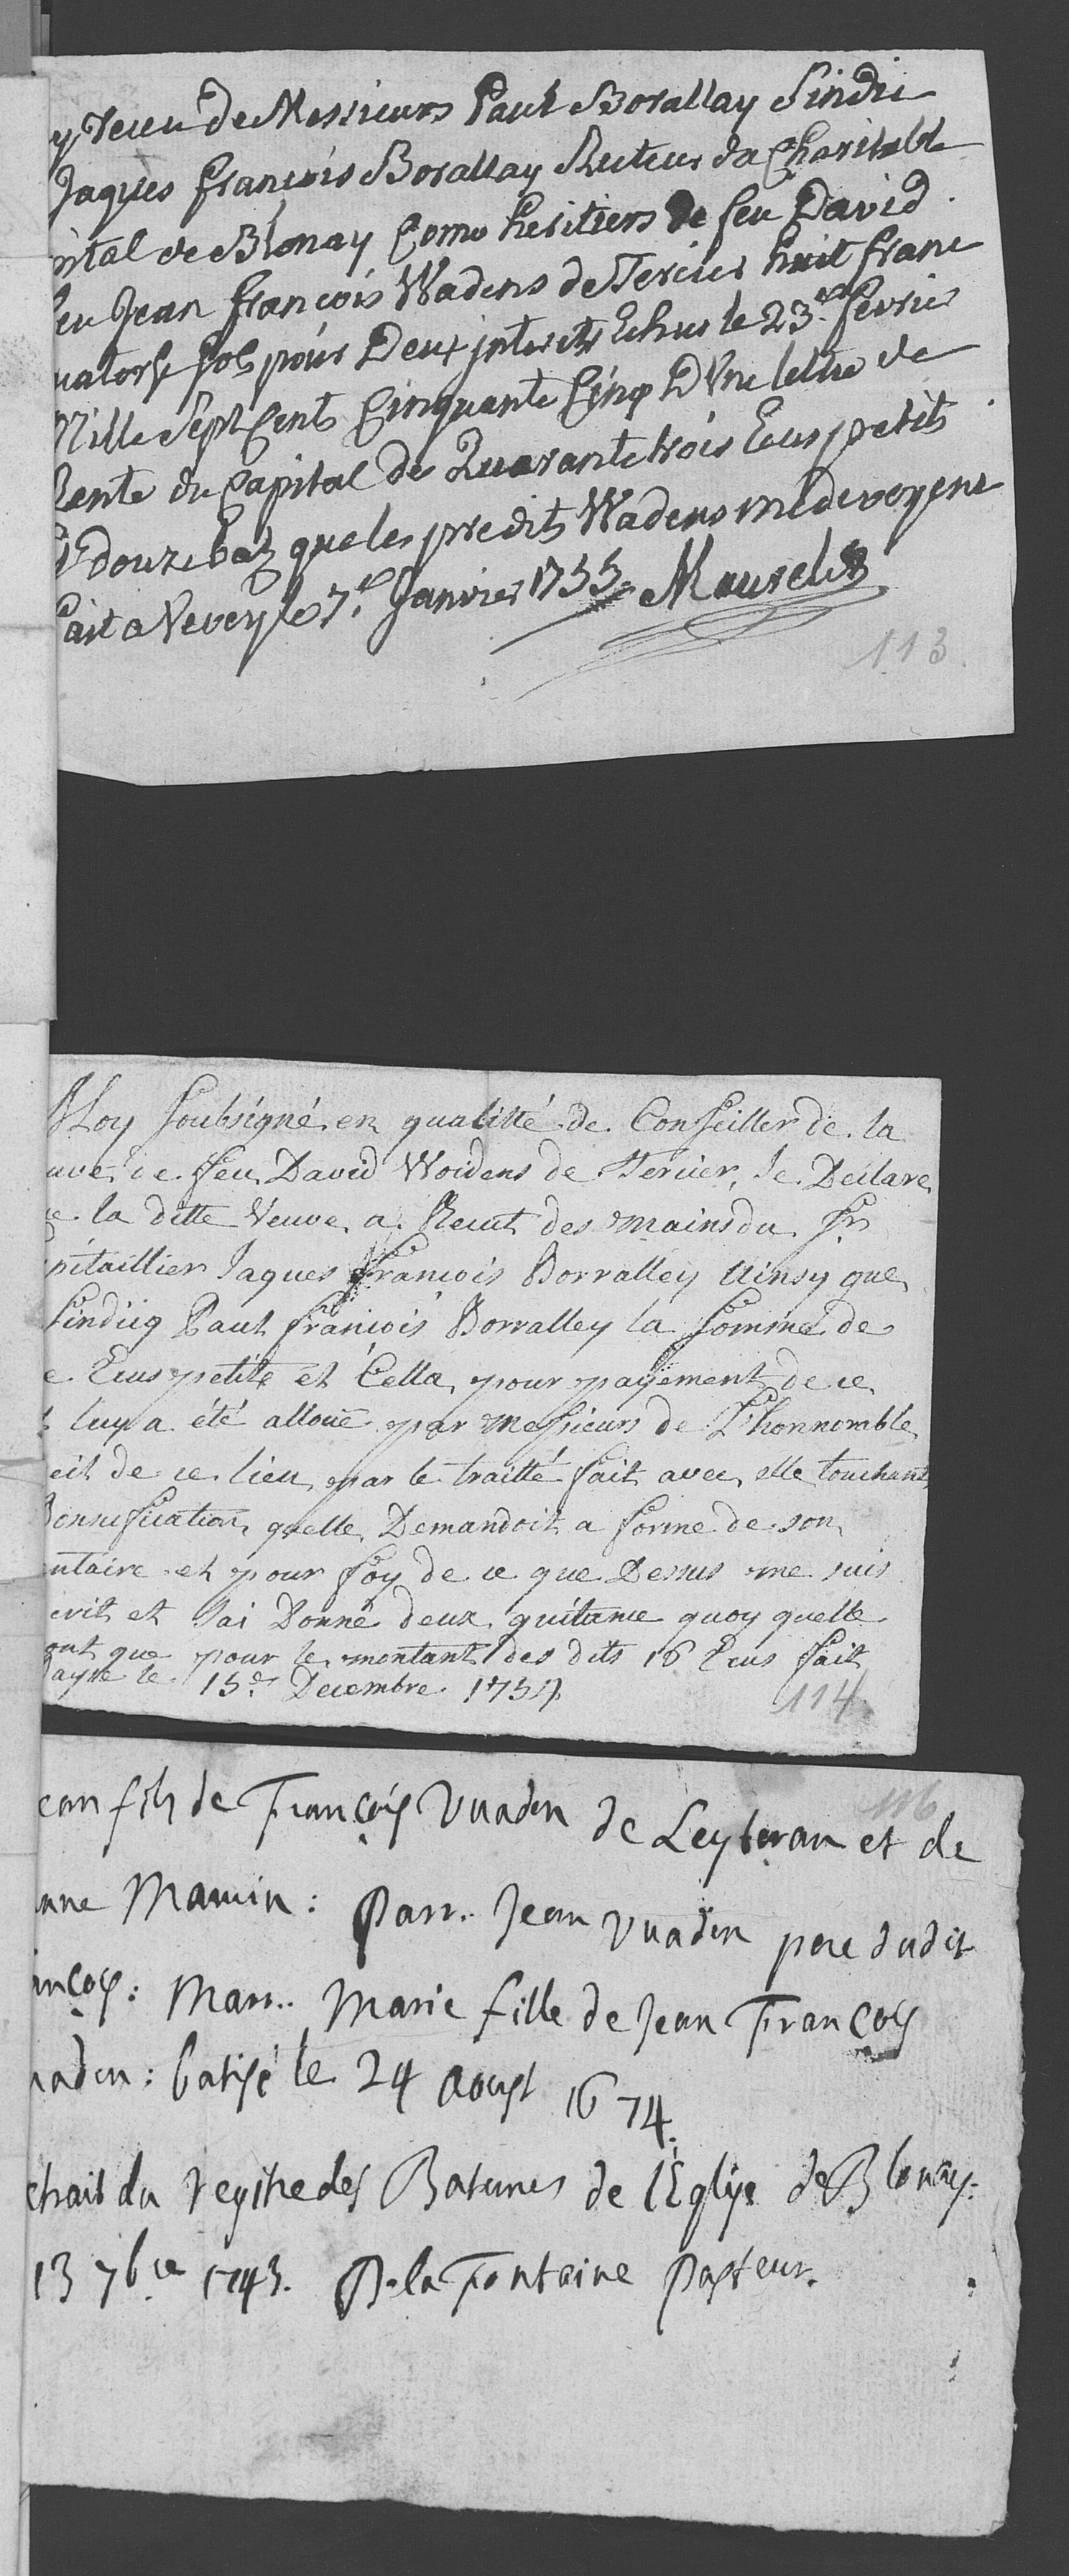 y receu de Messieurs Paul Borallay Sindic
Jaques François Borallay Recteur da Charitable
pital de Blonay Come heritiers de feu David
feu Jean François Wadens de Tercier huit franc
uatorse sols pour Deux interets Echus le 23.e fevrier
Mille Sept Cents Cinquante Cinq D'Une lettre de
Rente du Capital de Quarante trois Ecus petits
Et douze batz que les predits Wadens me devoyent
fait a Vevey le 7.e Janvier 1755.
113
Moy soubsigné en qualitté de Conseiller de la
euve de feu David Wadens de Tercier, Je Declare
ue la ditte Veuve a Reçut des mains du Sr.
pitaillier Jaques François Borralley Ainsy que
Sindicq Paul François Borralley la Somme de
e Ecus petits et Cella pour payement de ce
luy a été alloué par Messieurs de L'honnorable
eil de ce lieu par le traitté fait avec elle touchant
Bonnification quelle Demandoit a forme de son
entaire et pour foy de ce que Dessus me suis
crit et J'ai Donné deux quitance quoy quelle
ont que pour le montant des dits 16 Ecus fait
ayse le 15.e Decembre 1754
114
116
ean fils de François Vuaden de Leyteran et de
anne Mamin : Parr. Jean Vuaden pere dudit
ançois : Marr. Marie fille de Jean François
uaden : batisé le 24 Aoust 1674.
xtrait du regitre des Batemes de l'Eglise de Blonay.
13 7bre 1743. P. la Fontaine Pasteur.